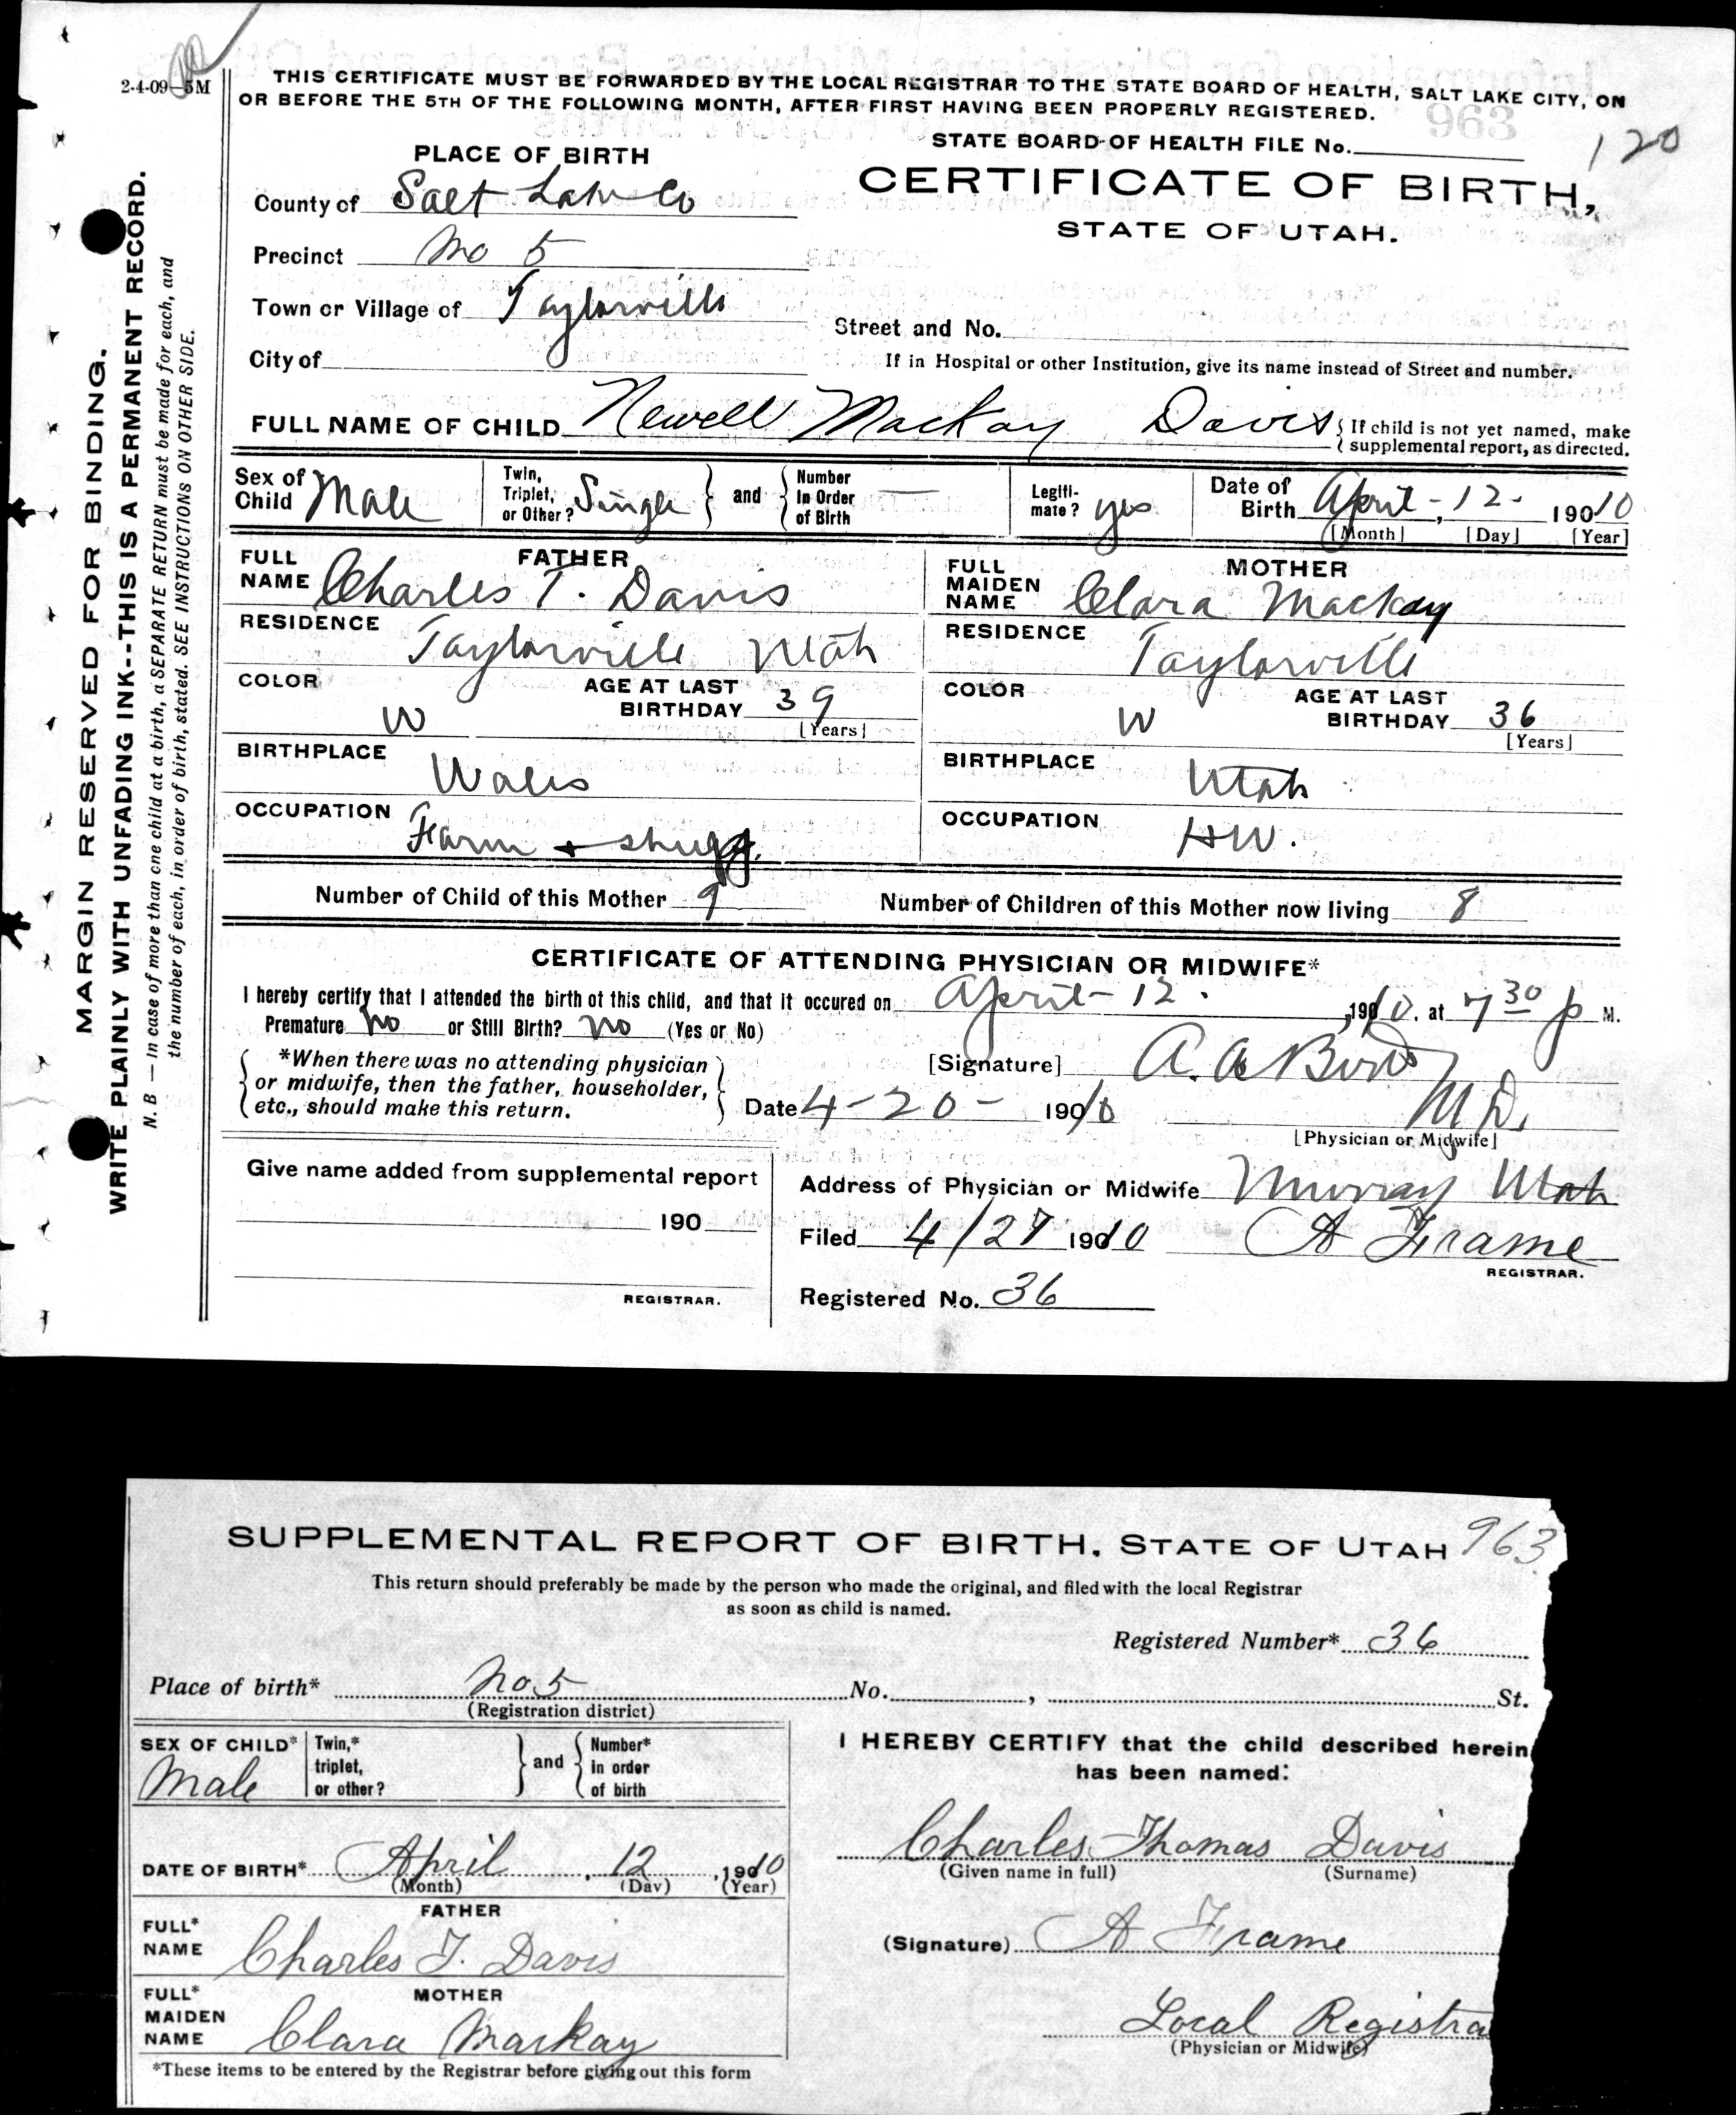 2-4-09-5M
THIS CERTIFICATE MUST BE FORWARDED BY THE LOCAL REGISTRAR TO THE STATE BOARD OF HEALTH, SALT LAKE CITY, ON
OR BEFORE THE 5TH OF THE FOLLOWING MONTH, AFTER FIRST HAVING BEEN PROPERLY REGISTERED.
963
STATE BOARD OF HEALTH FILE No.
120
PLACE OF BIRTH
CERTIFICATE OF BIRTH,
STATE OF UTAH.
County of Salt Lake Co
Precinct No 5
Town or Village of Taylorville
Street and No.
City of
If in Hospital or other Institution, give its name instead of Street and number.
FULL NAME OF CHILD Newell Mackay Davis { If child is not yet named, make
supplemental report, as directed.
Sex of Child Male
Twin, Triplet, or Other? Single } and { Number In Order of Birth —
Legiti-mate? yes
Date of Birth April - 12 - 19010
[Month] [Day] [Year]
FATHER
FULL NAME Charles T. Davis
RESIDENCE Taylorville Utah
COLOR W AGE AT LAST BIRTHDAY 39
[Years]
BIRTHPLACE Wales
OCCUPATION Farm +
MOTHER
FULL MAIDEN NAME Clara Mackay
RESIDENCE Taylorville
COLOR W AGE AT LAST BIRTHDAY 36
[Years]
BIRTHPLACE Utah
OCCUPATION HW.
Number of Child of this Mother 9 Number of Children of this Mother now living 8
CERTIFICATE OF ATTENDING PHYSICIAN OR MIDWIFE*
I hereby certify that I attended the birth of this child, and that it occured on April - 12. , 1910. at 7 30 p M.
Premature No or Still Birth? No (Yes or No)
{ *When there was no attending physician
or midwife, then the father, householder,
etc., should make this return. }
[Signature] A. A. Bird
Date 4-20- 19010 M D.
[Physician or Midwife]
Give name added from supplemental report
190
REGISTRAR.
Address of Physician or Midwife Murray Utah
Filed 4/27 19010 A Frame
REGISTRAR.
Registered No. 36
MARGIN RESERVED FOR BINDING.
WRITE PLAINLY WITH UNFADING INK--THIS IS A PERMANENT RECORD.
N. B — In case of more than one child at a birth, a SEPARATE RETURN must be made for each, and
the number of each, in order of birth, stated. SEE INSTRUCTIONS ON OTHER SIDE.
SUPPLEMENTAL REPORT OF BIRTH. STATE OF UTAH 963
This return should preferably be made by the person who made the original, and filed with the local Registrar
as soon as child is named.
Registered Number* 36
Place of birth* No 5 No. , St.
(Registration district)
SEX OF CHILD* Male
Twin,* triplet, or other? } and { Number* in order of birth
DATE OF BIRTH* April , 12 , 19010
(Month) (Day) (Year)
FATHER
FULL* NAME Charles T. Davis
MOTHER
FULL* MAIDEN NAME Clara Markay
*These items to be entered by the Registrar before giving out this form
I HEREBY CERTIFY that the child described herein
has been named:
Charles Thomas Davis
(Given name in full) (Surname)
(Signature) A Frame
Local Registra
(Physician or Midwife)